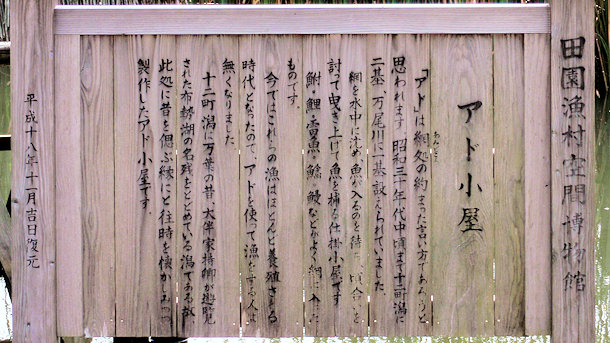 田園漁村空間博物館
アド小屋
「アド」は網処の約まった言い方であろうと
あんど
思われます。昭和三十年代中頃まで十二町潟に
二基、万尾川に一基設えられていました。
網を水中に沈め、魚が入るのを待ち、頃合いを
討って曳き上げて魚を捕る仕掛小屋です。
鮒・鯉・雷魚・鯰・鰻などがよく網に入った
ものです。
今ではこれらの漁はほとんど養殖される
時代となったので、アドを使って漁をする人は
無くなりました。
十二町潟に万葉の昔、大伴家持卿が遊覧
された布勢湖の名残をとどめている潟である故
此処に昔を偲ぶ縁にと往時を懐かしみつつ
製作したアド小屋です。
平成十八年十一月吉日復元